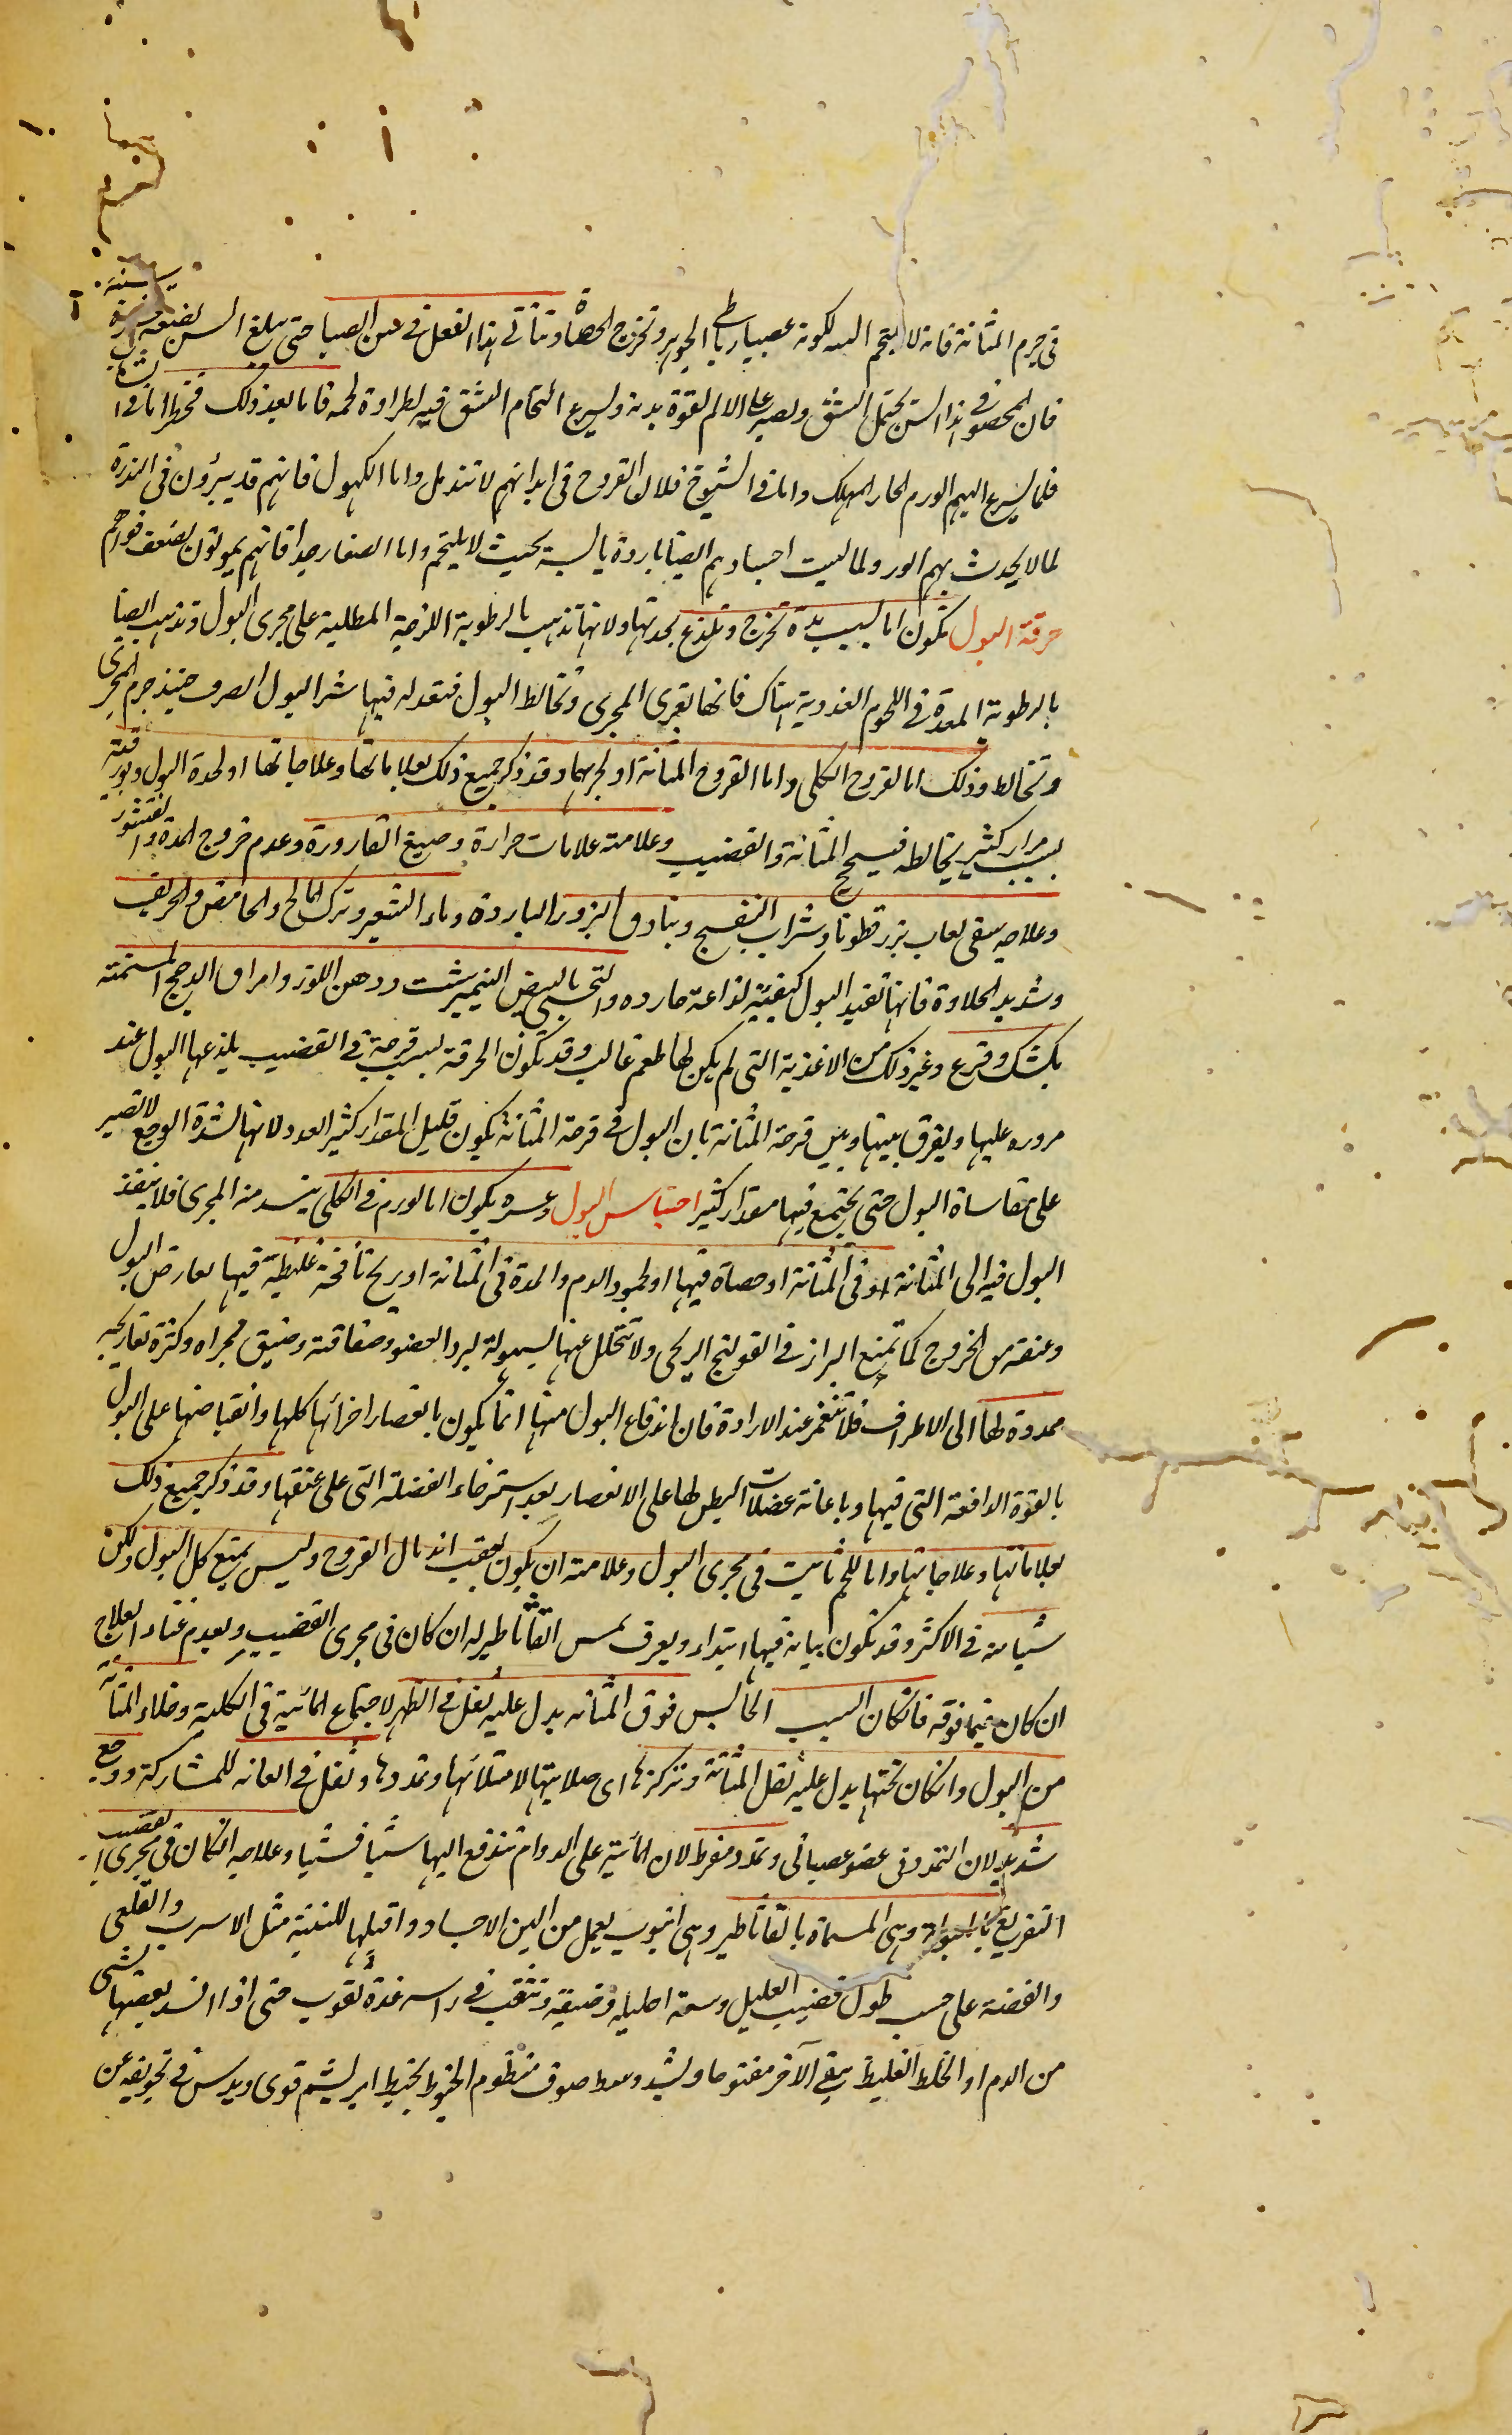 فى جرم المثانة فانه لا يلتحم البتة لكونه عصبيا رباطى الجوهر وتخرج الحصاة ويتأتى هذا الفعل فى سن الصبا حتى يبلغ السن
فان المحصو فى هذا السن يحتمل الشق ويصبر على الالم لقوة بدنه ويسرع التحام الشق فيه لطراوة لحمه فاما بعد ذلك فخطر اما فى الشبان
فلما يسرع اليهم الورم الحار المهلك واما فى الشيوخ فلان القروح فى ابدانهم لا تندمل واما الكهول فانهم قد يبرؤن فى الندرة
لما لا يحدث بهم الورم ولما ليست اجسادهم ايضا باردة يابسة بحيث لا يلتحم واما الصغار جدا فانهم يموتون لضعف قواهم
حرقة البول تكون اما لسبب مدة تخرج وتلذع بحدتها ولانها تذهب بالرطوبة اللزجة المطلية على مجرى البول وتذهب ايضا
بالرطوبة المعدة فى اللحوم الغددية هناك فانها تغرى المجرى وتخالط البول فتعدله فيباشر البول الصرف حينئذ جرم المجرى
وتخالط وذلك اما لقروح الكلى واما لقروح المثانة او لجربهما وقد ذكر جميع ذلك بعلاماتها وعلاجاتها او لحدة البول وبورقيته
بسبب مرار كثير يخالطه فيسحج المثانة والقضيب وعلامته علامات حرارة وصبغ القارورة وعدم خروج المدة والقشور
وعلاجه سقى لعاب بزر قطونا وشراب البنفسج وبنادق البزور الباردة وماء الشعير وترك المالح والحامض والحريف
وشديد الحلاوة فانها تفيد البول كيفية لذاعة حادة والتحسى بالبيض النيمبرشت ودهن اللوز وامراق الدجج المسمنة
بكشك وقرع وغير ذلك من الاغذية التى لم يكن لها طعم غالب وقد تكون الحرقة بسبب قرحة فى القضيب يلذعها البول عند
مروره عليها ويفرق بينها وبين قرحة المثانة بان البول فى قرحة المثانة يكون قليل المقدار كثير العدد لانها لشدة الوجع لا تصبر
على مقاساة البول حتى يجتمع فيها مقدار كثير احتباس البول وعسره يكون اما لورم فى الكلى ينسد منه المجرى فلا ينفذ
البول فيه الى المثانة او فى المثانة او حصاة فيها او لجمود الدم والمدة فى المثانة او ريح نافخة غليظة فيها تعارض البول
وعنقه من الخروج كما تمنع البراز فى القولنج الريحى ولا تتحلل عنها بسهولة لبرد العضو وصفاقته وضيق مجراه وكثرة تعاريجه
ممددة لها الى الاطراف فلا تنغمز عند الارادة فان اندفاع البول منها انما يكون بانعصار اجزائها كلها وانقباضها على البول
بالقوة الدافعة التى فيها وباعانة عضلات البطن لها على الانعصار بعد استرخاء العضلة التى على عنقها وقد ذكر جميع ذلك
بعلاماتها وعلاجاتها واما للحم نابت فى مجرى البول وعلامته ان يكون بعقب اندمال القروح وليس يمنع كل البول ولكن
شيا منه فى الاكثر وقد تكون نباته فيها ابتداء ويعرف بمس القاثاطير له ان كان فى مجرى القضيب وبعدم غناء العلاج
ان كان فيما فوقه فانكان السبب الحابس فوق المثانه يدل عليه ثقل فى الظهر لاجتماع المائية فى الكلية وخلاء المثانة
من البول وانكان تحتها يدل عليه ثقل المثانة وتركزها اى صلابتها لامتلائها وتمددها وثقل فى العانه للمشاركة ووجع
شديد لان التمدد فى عضو عصبانى وتمدد مفرط لان المائية على الدوام تندفع اليها شيا فشيا وعلاجه انكان فى مجرى القضيب
التفريغ بالمبولة وهى المسماة بالقاثاطير وهى انبوب يعمل من الين الاجساد واقبلها للتثنية مثل الاسرب والقلعى
والفضة على حسب طول قضيب العليل وسعة احليله وضيقه وتثقب فى راسه عدة ثقوب حتى اذا انسد بعضها بشى
من الدم او الخلط الغليظ يبقى الآخر مفتوحا ويشد وسط صوف منظوم الخيوط بخيط ابريشم قوى ويدس فى تجويفه من